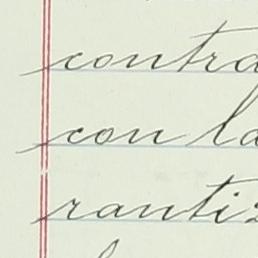 contra
con la
ranti